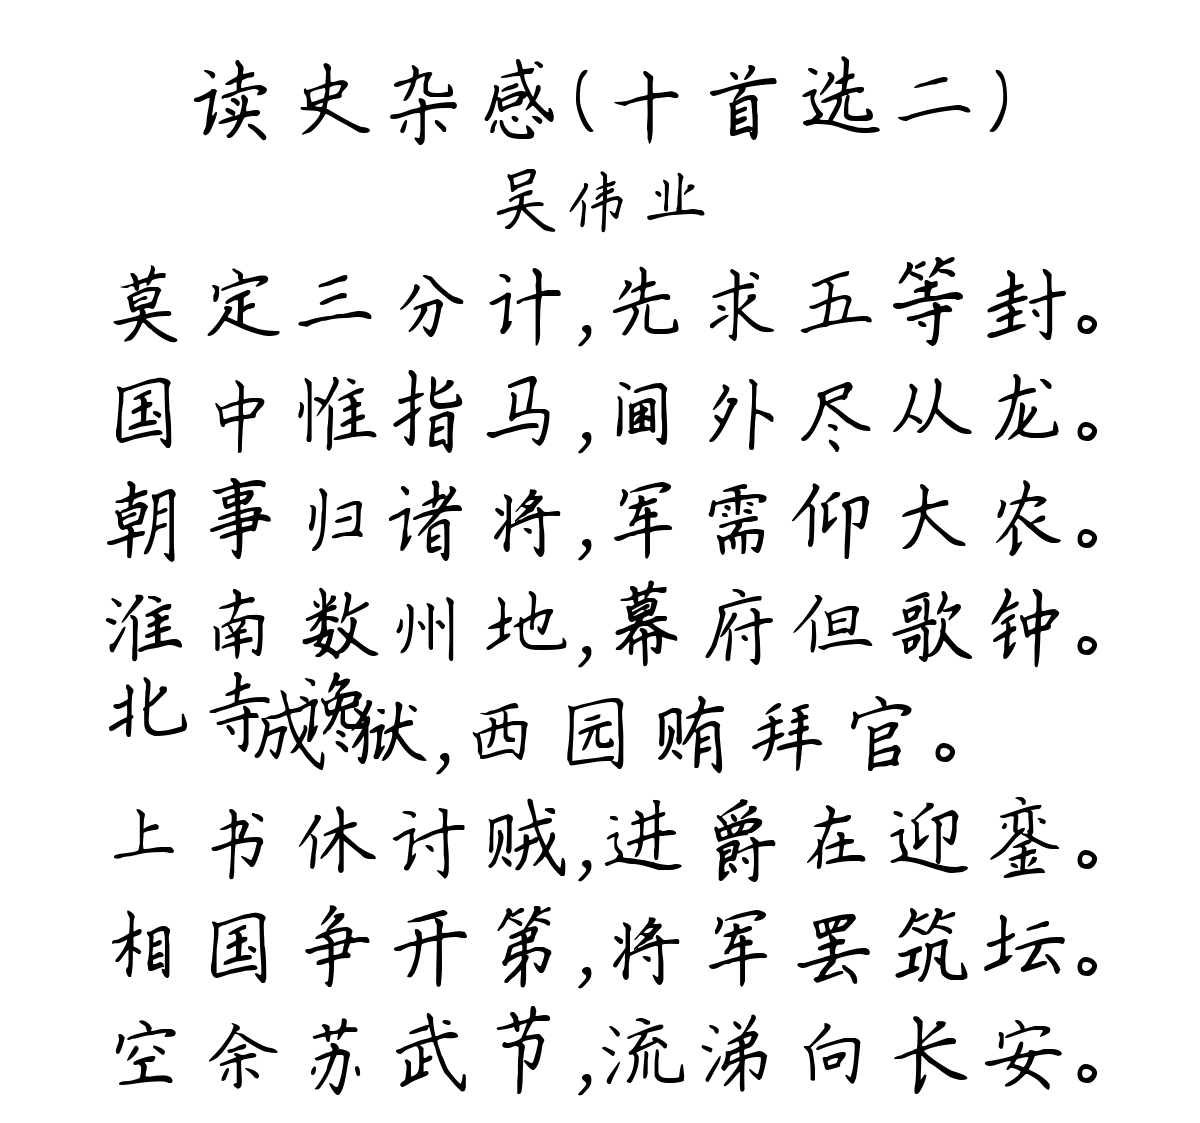 读史杂感(十首选二)
吴伟业
莫定三分计,先求五等封。
国中惟指马,阃外尽从龙。
朝事归诸将,军需仰大农。
淮南数州地,幕府但歌钟。
北寺谗成狱,西园贿拜官。
上书休讨贼,进爵在迎銮。
相国争开第,将军罢筑坛。
空余苏武节,流涕向长安。